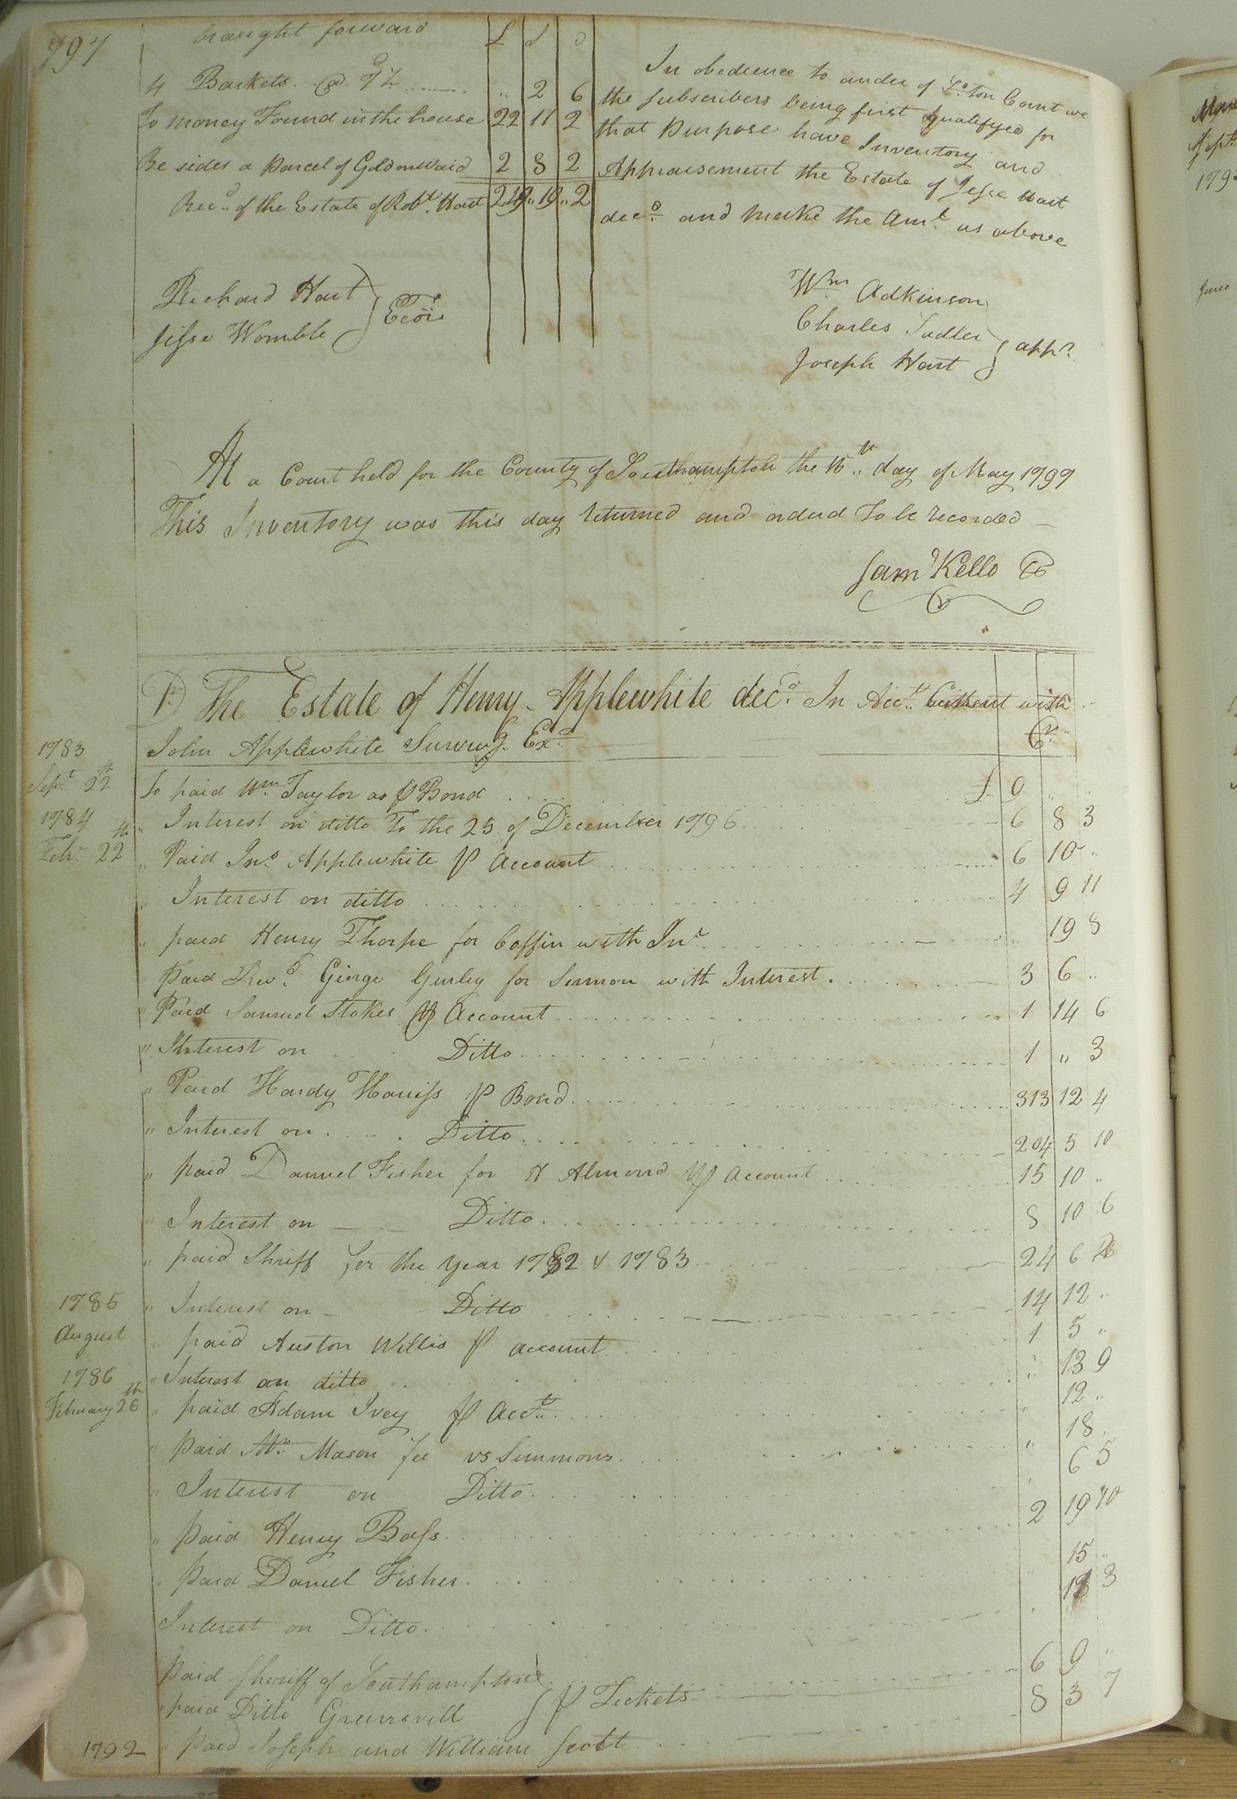 797
brought forward £ S D
4 Baskets @ 7½ " 2 6
To money Found in the house 22 11 2
Besides a parcel of Gold on Waid 2 8 2
Recd. of the Estate of Robt. Hart 249 " 19 " 2
In obedience to order of So.ton Court we
the subscribers being first qualifyed for
that Purpose have Inventory and
Appraisement the Estate of Jesse Hart
decd. and make the Amt. as above
Richard Hart
Jesse Womble } Ecors
Wm Adkinson
Charles Judler
Joseph Hart } appr.
At a Court held for the County of Southampton the 16th day of May 1799
This Inventory was this day returned and orderd To be recorded
Saml Kello C
Dr. The Estate of Henry Applewhite decd. In Acct. Current with
John Applewhite Survivg. Exr. Cr.
1783
Sept. 22th To paid Wm. Taylor as P Bond £ 9 " "
1784 " Interest on ditto To the 25 of December 1796 6 8 3
Febr. 22th " Paid Jno. Applewhite P Account 6 10 "
" Interest on ditto 4 9 11
" paid Henry Thorpe for Coffin with Int. " 19 8
" Paid Revd. George Gurley for Sermon with Interest 3 6 "
" Paid Samuel Stokes P Account 1 14 6
" Interest on Ditto 1 " 3
" Paid Hardy Harriss P Bond 313 12 4
" Interest on Ditto 204 5 10
" paid Daniel Fisher for H Almond P Account 15 10 "
" Interest on Ditto 8 10 6
" paid Shriff for the year 1782 & 1783 24 6 2
1785 " Interest on Ditto 14 12 "
August " paid Auston Willis P account 1 5 "
1786 " Interest on ditto " 13 9
February 26th " paid Adam Ivey P Acct. " 12 "
" paid Mr. Mason fee vs Simmons " 18 "
" Interest on Ditto " 6 5
" paid Henry Bass 2 19 10
" paid Daniel Fisher " 15 "
Interest on Ditto " 3
paid Sheriff of Southampton 6 9 "
" paid Ditto Greensvill } P Tickets 8 3 7
1792 " paid Joseph and William Scott